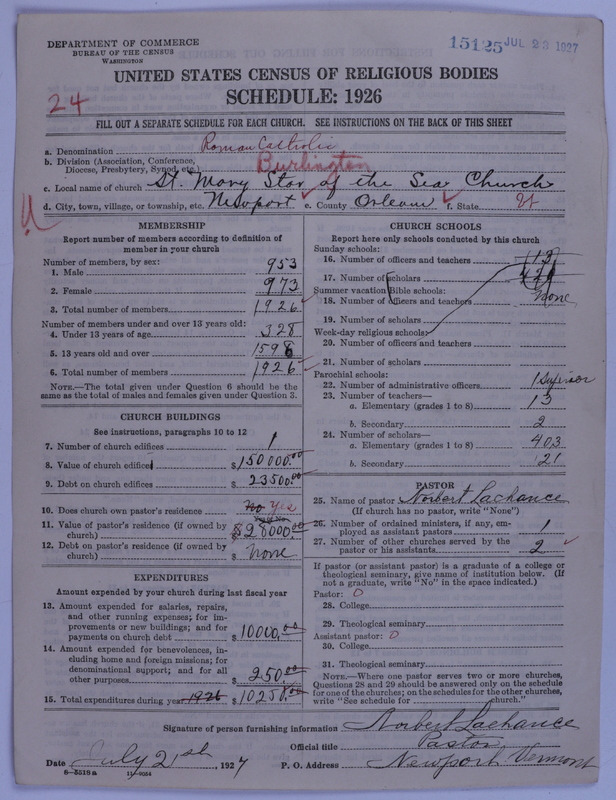 DEPARTMENT OF COMMERCE
BUREAU OF THE CENSUS
WASHINGTON
15125 JUL 23 1927
UNITED STATES CENSUS OF RELIGIOUS BODIES
SCHEDULE: 1926
24
FILL OUT A SEPARATE SCHEDULE FOR EACH CHURCH. SEE INSTRUCTIONS ON THE BACK OF THIS SHEET
a. Denomination Roman Catholic
b. Division (Association, Conference, Diocese, Presbytery, Synod, etc.) Burlington
c. Local name of church St. Mary Star of the Sea Church
d. City, town, village, or township, etc. Newport e. County Orleans f. State Vt
MEMBERSHIP
Report number of members according to definition of
member in your church
Number of members, by sex:
1. Male 953
2. Female 973
3. Total number of members 1926
Number of members under and over 13 years old:
4. Under 13 years of age 328
5. 13 years old and over 1598
6. Total number of members 1926
NOTE.—The total given under Question 6 should be the
same as the total of males and females given under Question 3.
CHURCH BUILDINGS
See instructions, paragraphs 10 to 12
7. Number of church edifices 1
8. Value of church edifices $150000.00
9. Debt on church edifices $23500.00
10. Does church own pastor's residence No Yes
(Yes or No)
11. Value of pastor's residence (if owned by
church) $28000.00
12. Debt on pastor's residence (if owned by
church) $ none
EXPENDITURES
Amount expended by your church during last fiscal year
13. Amount expended for salaries, repairs,
and other running expenses; for im-
provements or new buildings; and for
payments on church debt $10000.00
14. Amount expended for benevolences, in-
cluding home and foreign missions; for
denominational support; and for all
other purposes $250.00
15. Total expenditures during year 1926 $10250.00
CHURCH SCHOOLS
Report here only schools conducted by this church
Sunday schools:
16. Number of officers and teachers 13
17. Number of scholars
Summer vacation Bible schools:
18. Number of officers and teachers None
19. Number of scholars
Week-day religious schools:
20. Number of officers and teachers
21. Number of scholars
Parochial schools:
22. Number of administrative officers 1 Superior
23. Number of teachers—
a. Elementary (grades 1 to 8) 13
b. Secondary 2
24. Number of scholars—
a. Elementary (grades 1 to 8) 403
b. Secondary 21
PASTOR
25. Name of pastor Norbert Lachance
(If church has no pastor, write "None")
26. Number of ordained ministers, if any, em-
ployed as assistant pastors 1
27. Number of other churches served by the
pastor or his assistants 2
If pastor (or assistant pastor) is a graduate of a college or
theological seminary, give name of institution below. (If
not a graduate, write "No" in the space indicated.)
Pastor: 0
28. College
29. Theological seminary
Assistant pastor: 0
30. College
31. Theological seminary
NOTE.—Where one pastor serves two or more churches,
Questions 28 and 29 should be answered only on the schedule
for one of the churches; on the schedules for the other churches,
write "See schedule for church."
Signature of person furnishing information Norbert Lachance
Official title Pastor
Date July 21st, 1927 P. O. Address Newport Vermont
8-5518a 11-9054